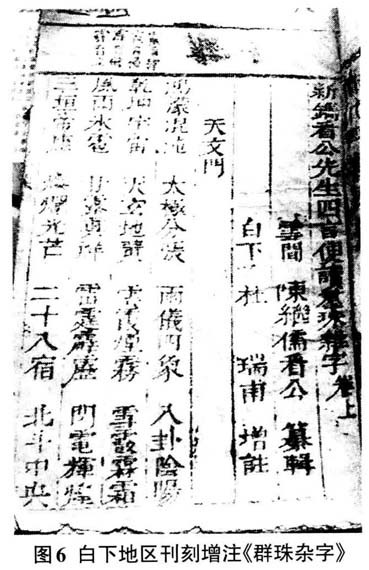 新鐫眉公先生四言便讀羣珠雜字 卷上
雲間 陳繼儒眉公 纂輯
白下 杜 瑞甫 增註
天文門
鴻濛混沌 太極分 兩儀四象 八卦陰陽
乾坤宇宙 天玄地 雲霞煙霧 雪霰霧霜
風雨冰雹 甘露 祥 雷霆霹靂 閃電輝煌
三垣帝座 耀光芒 二十八宿 北斗中央
图6 白下地区刊刻增注《群珠杂字》